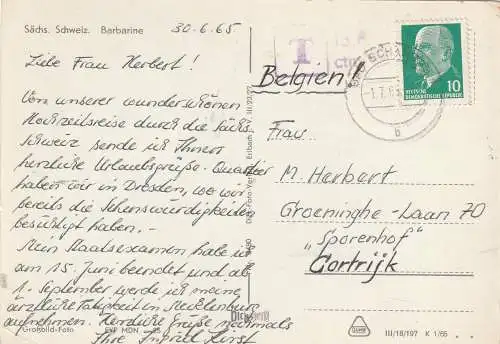 Sächs. Schweiz. Barbarine
30.6.65
Liebe Frau Herbert!
Von unserer wunderschönen
Hochzeitsreise durch die Sächs.
Schweiz sende ich Ihnen
herzliche Urlaubsgrüße. Quartier
haben wir in Dresden, wo wir
bereits die Sehenswürdigkeiten
besichtigt haben. -
Mein Staatsexamen habe ich
am 15. Juni beendet und ab
1. September werde ich meine
ärztliche Tätigkeit in Mecklenburg
aufnehmen. Herzliche Grüße nochmals
Ihre Ingrid
Großbild-Foto
EVP MDN
III/22/27
T
Belgien
DEUTSCHE
DEMOKRATISCHE REPUBLIK
10
6
Frau
M. Herbert
Groeninghe-Laan 70
„Sporenhof"
Cortrijk
III/18/197 K 1/65